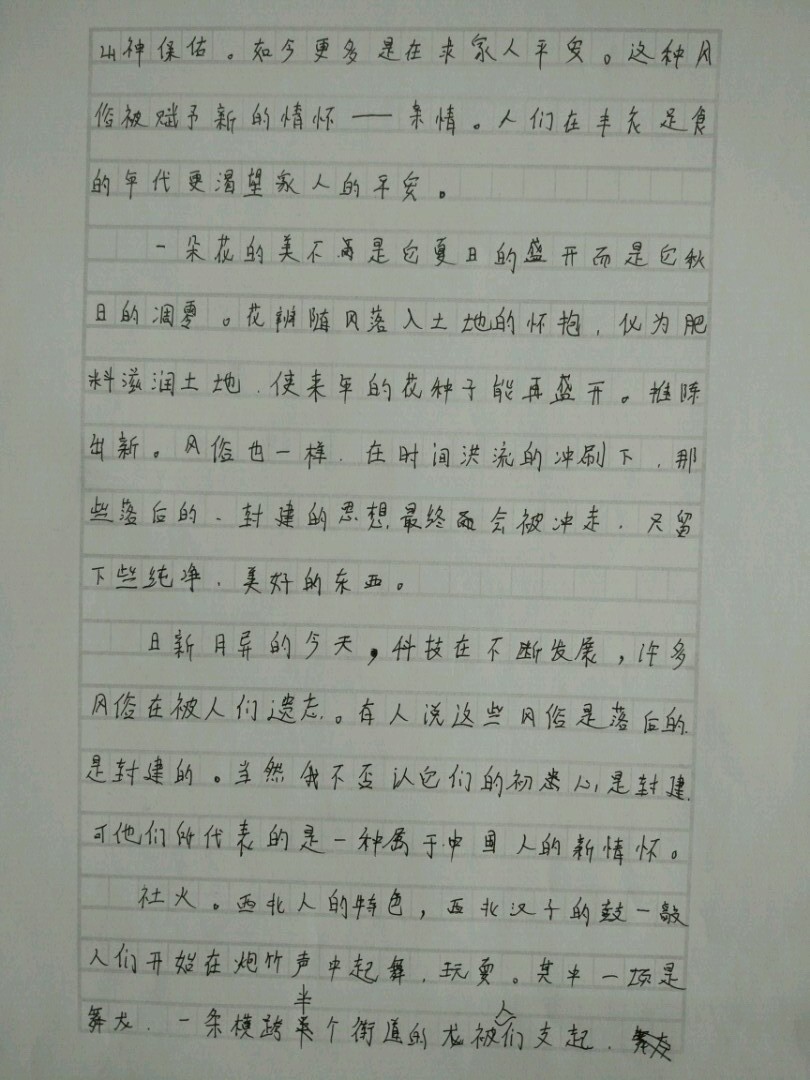 山神保佑。如今更多是在求家人平安。这种风
俗被赋予新的情怀——亲情。人们在丰衣足食
的年代更渴望家人的平安。
一朵花的美不再是它夏日的盛开而是它秋
日的凋零。花辨随风落入土地的怀抱,化为肥
料滋润土地,使来年的花种子能再盛开。推陈
出新。风俗也一样,在时间洪流的冲刷下,那
些落后的、封建的思想最终会被冲走,只留
下些纯净、美好的东西。
日新月异的今天,科技在不断发展,许多
风俗在被人们遗忘。有人说这些风俗是落后的,
是封建的。当然我不否认它们的初衷心是封建,
可他们所代表的是一种属于中国人的新情怀。
社火。西北人的特色,西北汉子的鼓一敲
人们开始在炮竹声中起舞,玩耍。其中一项是
舞龙,一条横跨半个街道的龙被人们支起,